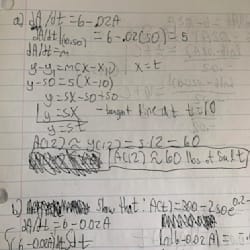 a) dA/dt = 6 - .02A
dA/dt|(10,50) = 6 - .02(50) = 5
dA/dt = m
y - y₁ = m(x - x₁) x = t
y - 50 = 5(x - 10)
y = 5x - 50 + 50
y = 5x - tangent line at t = 10
y = 5t
A(12) ≈ y(12) = 5·12 = 60
A(12) ≈ 60 lbs of salt
b) show that: A(t) = 300 - 250e^0.2-
dA/dt = 6 - 0.02A